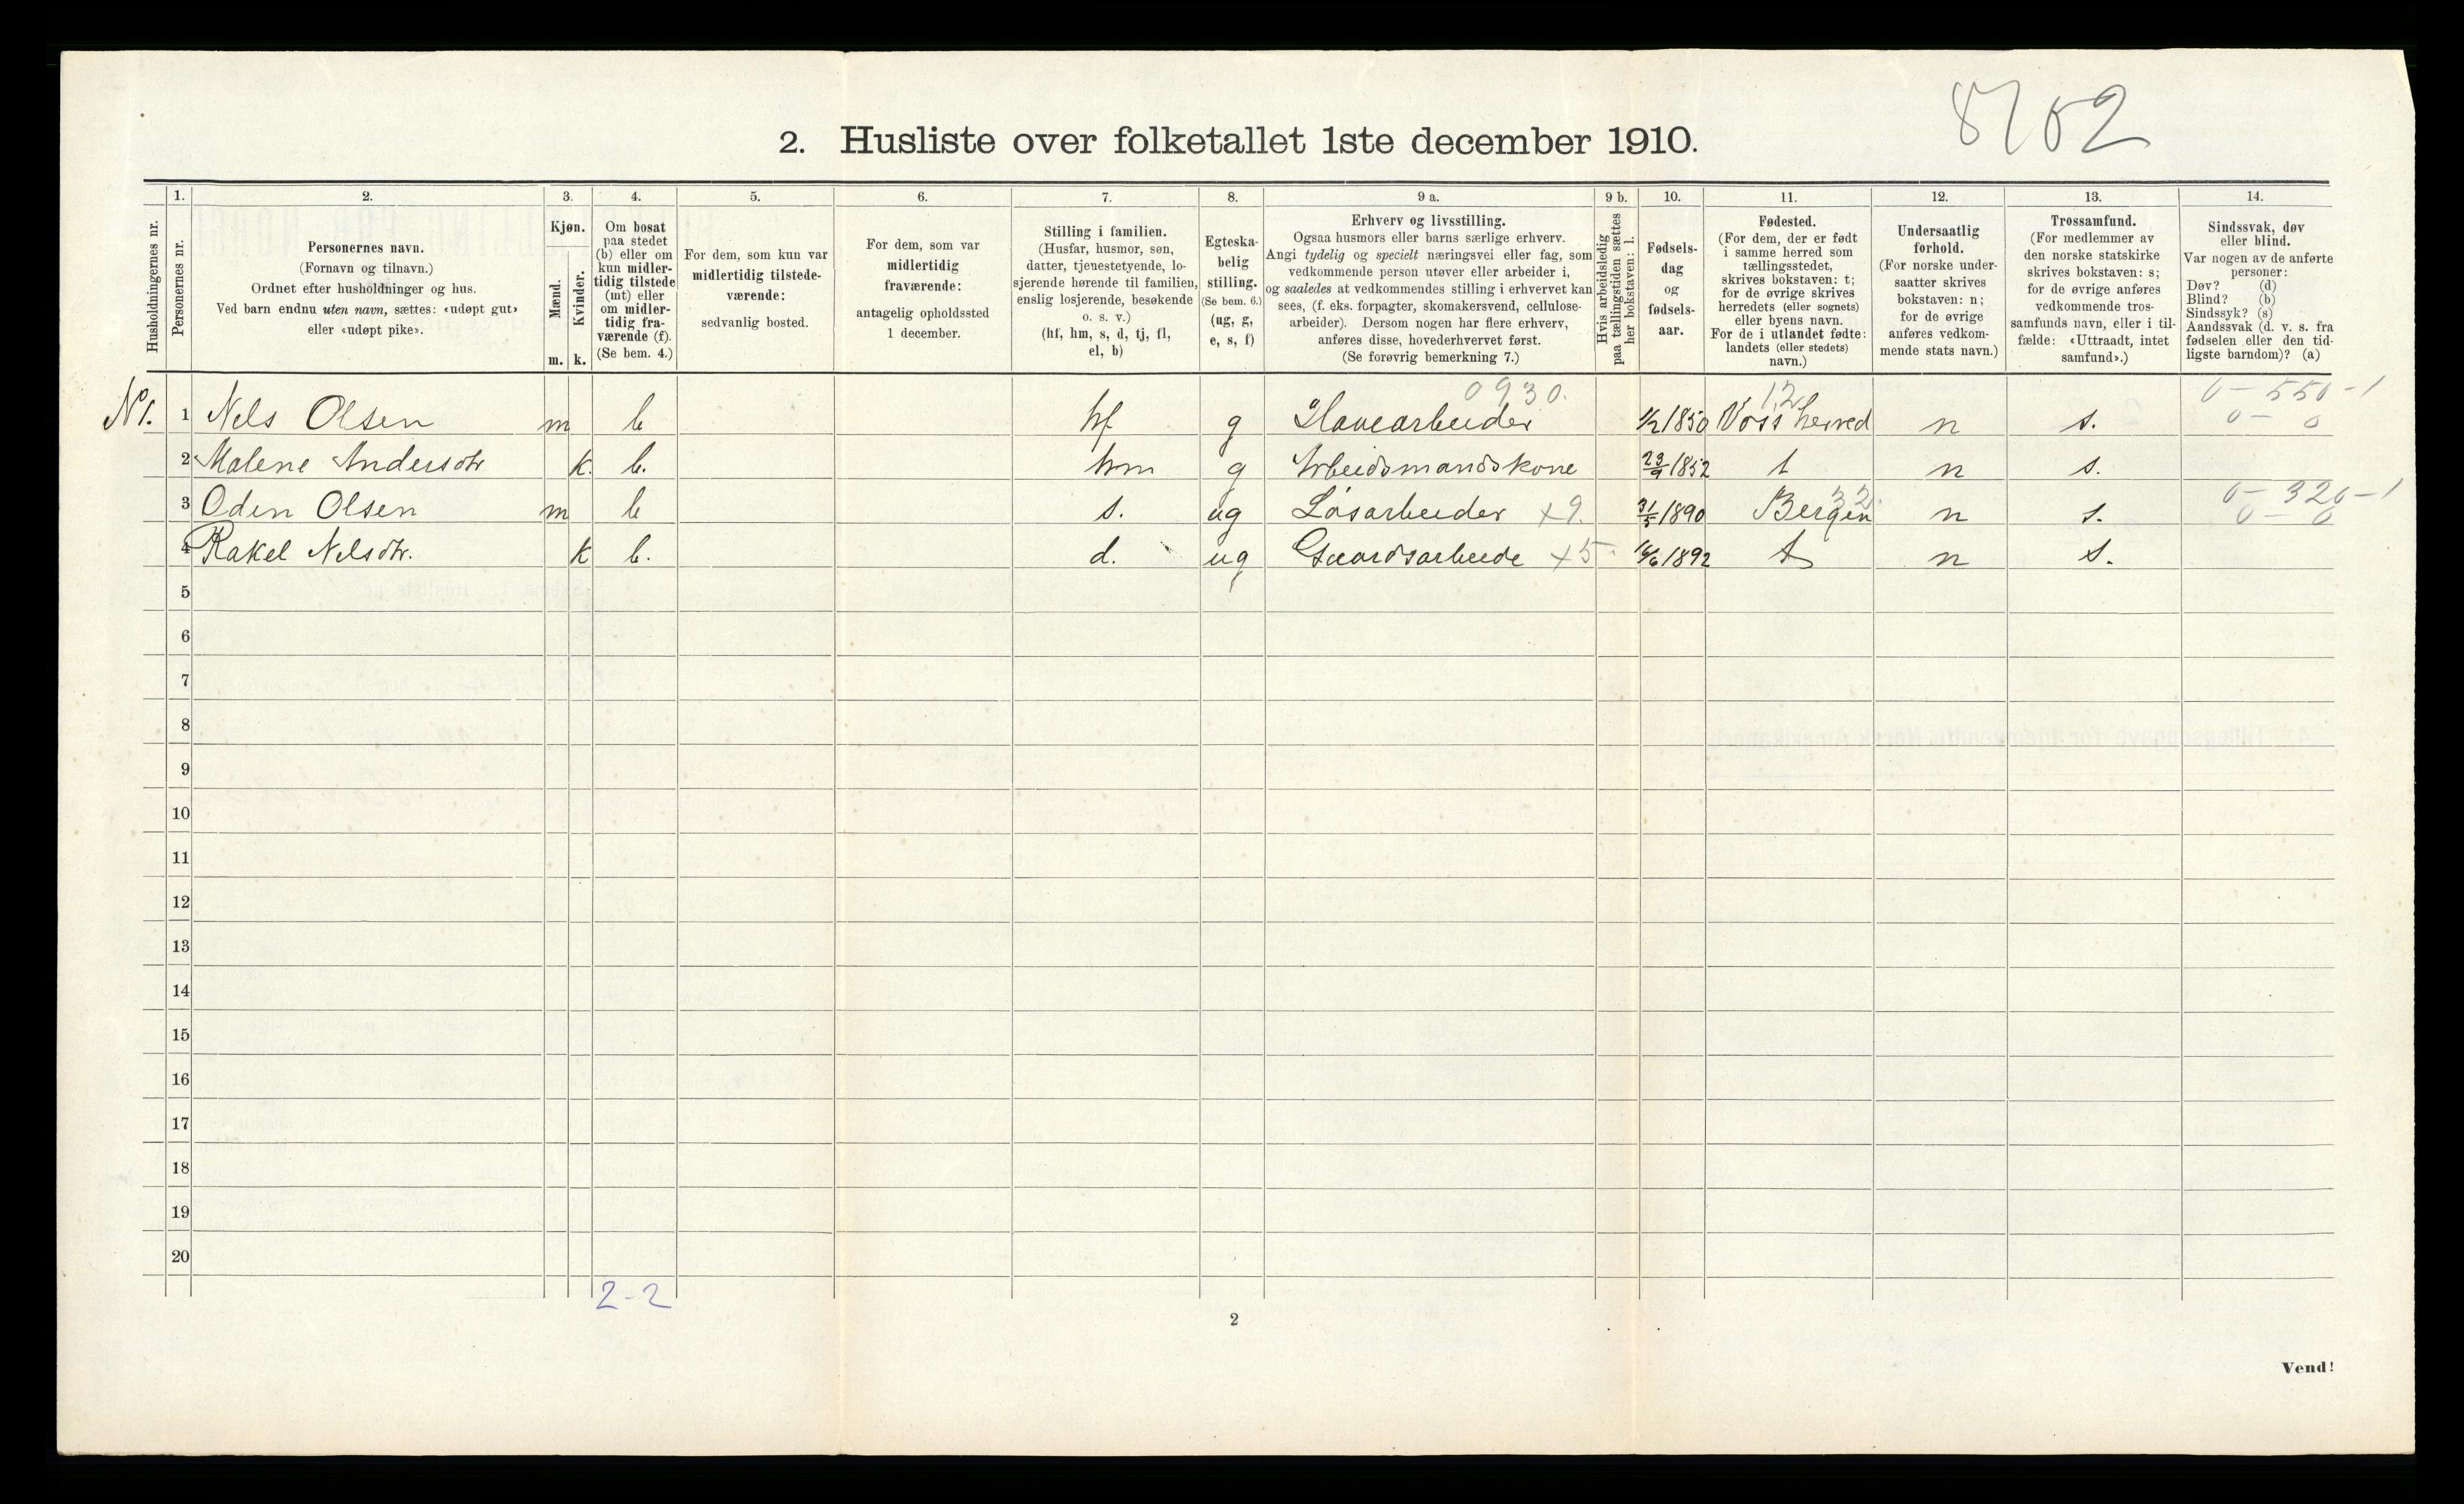 8762
2. Husliste over folketallet 1ste december 1910.
1. 2. 3. 4. 5. 6. 7. 8. 9 a. 9 b. 10. 11. 12. 13. 14.
Husholdningernes nr.
Personernes nr.
Personernes navn.
(Fornavn og tilnavn.)
Ordnet efter husholdninger og hus.
Ved barn endnu uten navn, sættes: «udøpt gut»
eller «udøpt pike».
Kjøn.
Mænd.
Kvinder.
m. k.
Om bosat
paa stedet
(b) eller om
kun midler-
tidig tilstede
(mt) eller
om midler-
tidig fra-
værende (f).
(Se bem. 4.)
For dem, som kun var
midlertidig tilstede-
værende:
sedvanlig bosted.
For dem, som var
midlertidig
fraværende:
antagelig opholdssted
1 december.
Stilling i familien.
(Husfar, husmor, søn,
datter, tjenestetyende, lo-
sjerende hørende til familien,
enslig losjerende, besøkende
o. s. v.)
(hf, hm, s, d, tj, fl,
el, b)
Egteska-
belig
stilling.
(Se bem. 6.)
(ug, g,
e, s, f)
Erhverv og livsstilling.
Ogsaa husmors eller barns særlige erhverv.
Angi tydelig og specielt næringsvei eller fag, som
vedkommende person utøver eller arbeider i,
og saaledes at vedkommendes stilling i erhvervet kan
sees, (f. eks. forpagter, skomakersvend, cellulose-
arbeider). Dersom nogen har flere erhverv,
anføres disse, hovederhvervet først.
(Se forøvrig bemerkning 7.)
Hvis arbeidsledig
paa tællingstiden sættes
her bokstaven: l.
Fødsels-
dag
og
fødsels-
aar.
Fødested.
(For dem, der er født
i samme herred som
tællingsstedet,
skrives bokstaven: t;
for de øvrige skrives
herredets (eller sognets)
eller byens navn.
For de i utlandet fødte:
landets (eller stedets)
navn.)
Undersaatlig
forhold.
(For norske under-
saatter skrives
bokstaven: n;
for de øvrige
anføres vedkom-
mende stats navn.)
Trossamfund.
(For medlemmer av
den norske statskirke
skrives bokstaven: s;
for de øvrige anføres
vedkommende tros-
samfunds navn, eller i til-
fælde: «Uttraadt, intet
samfund».)
Sindssvak, døv
eller blind.
Var nogen av de anførte
personer:
Døv? (d)
Blind? (b)
Sindssyk? (s)
Aandssvak (d. v. s. fra
fødselen eller den tid-
ligste barndom)? (a)
0930. 12 0-550-1
No 1. 1 Nels Olsen m b hf g Havearbeider 1/2 1850 Voss herred n s. 0-0
2 Malene Andersdtr k. b. hm g Arbeidsmandskone 23/9 1852 t n s.
32. 0-320-1
3 Oden Olsen m b s. ug Løsarbeider x9. 31/5 1890 Bergen n s. 0-0
4 Rakel Nelsdtr. k b. d. ug Gaardsarbeide x5. 16/6 1892 t n s.
5
6
7
8
9
10
11
12
13
14
15
16
17
18
19
20
2-2
2
Vend!